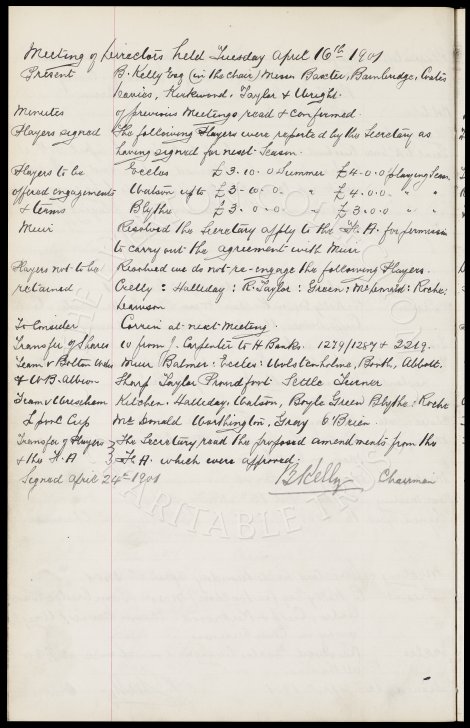 Meeting of Directors held Tuesday April 16th 1901
Present B. Kelly Esq (in the chair) Messrs Baxter, Bainbridge, Coates
Davies, Kirkwood, Taylor & Wright.
Minutes of previous Meetings, read & confirmed.
Players signed The following Players were reported by the Secretary as
having signed for next Season.
Players to be Eccles £3.10.0 Summer £4.0.0 playing Seas.
offered engagements Watson up to £3-10-0 " £4.0.0 " "
& terms Blythe £3.0.0 " £3.0.0 " "
Muir Resolved the Secretary apply to the F.A. for permission
to carry out the agreement with Muir
Players not to be Resolved we do not re-engage the following Players.
retained Crelly: Halliday: R. Taylor: Green: McDonald: Roche:
Dawson
To Consider Corrin at next Meeting.
Transfer of Shares 10 from J. Carpenter to H Banks. 1279/1287 & 2219.
Team v Bolton Wdrs Muir Balmer: Eccles: Wolstenholme, Booth, Abbott.
& W.B. Albion Sharp Taylor Proudfoot Settle Turner
Team v Wrexham Kitchen. Halliday. Watson, Boyle Green Blythe: Roche
L'pool Cup McDonald Worthington, Gray O'Brien
Transfer of Players The Secretary read the proposed amendments from the
& the F.A F.A. which were approved.
Signed April 24th 1901 B Kelly Chairman
CHARITABLE TRUST